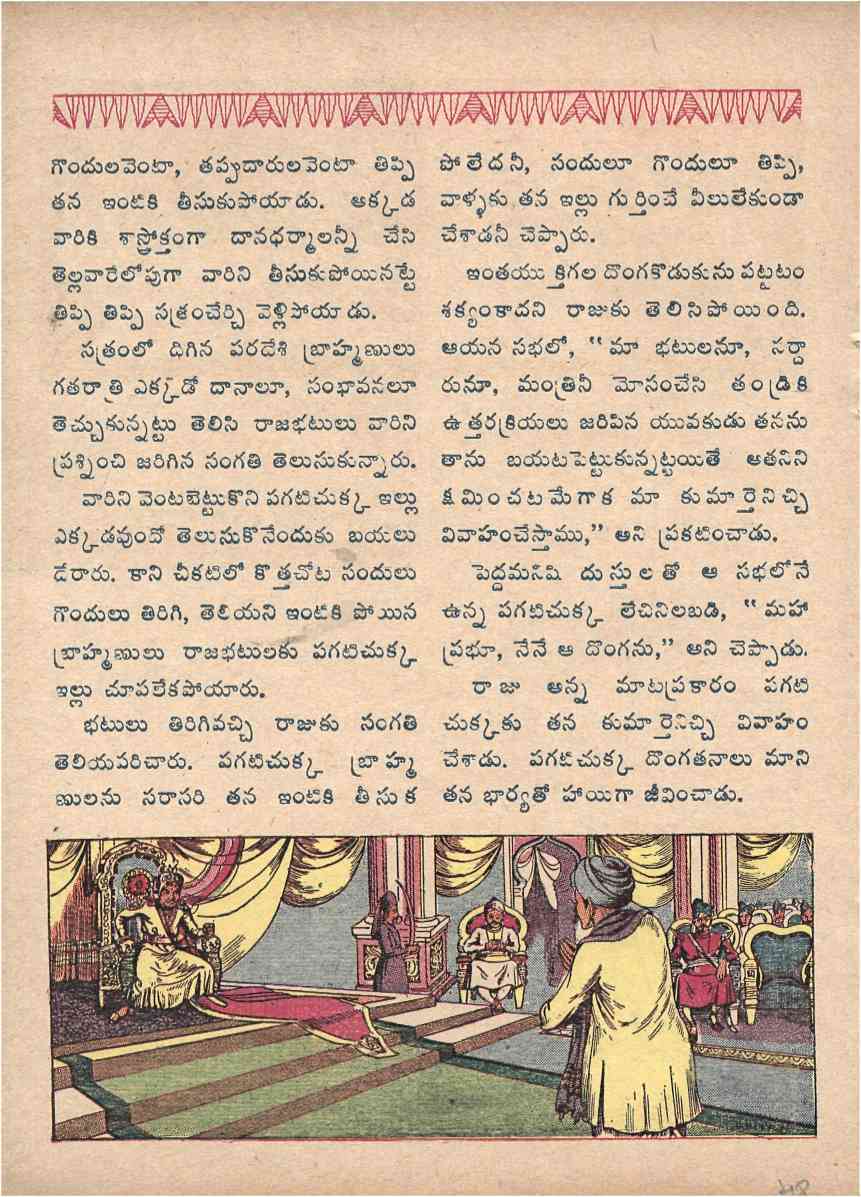 గొందులవెంటా, తప్పుదారులవెంటా తిప్పి
తన ఇంటికి తీసుకుపోయాడు. అక్కడ
వారికి శాస్త్రోక్తంగా దానధర్మాలన్నీ చేసి
తెల్లవారేలోపుగా వారిని తీసుకుపోయినట్టే
తిప్పి తిప్పి సత్రంచేర్చి వెళ్లిపోయాడు.
సత్రంలో దిగిన పరదేశి బ్రాహ్మణులు
గతరాత్రి ఎక్కడో దానాలూ, సంభావనలూ
తెచ్చుకున్నట్టు తెలిసి రాజభటులు వారిని
ప్రశ్నించి జరిగిన సంగతి తెలుసుకున్నారు.
వారిని వెంటబెట్టుకొని పగటిచుక్క ఇల్లు
ఎక్కడవుందో తెలుసుకొనేందుకు బయలు
డేరారు. కాని చీకటిలో కొత్తచోట సందులు
గొందులు తిరిగి, తెలియని ఇంటికి పోయిన
బ్రాహ్మణులు రాజభటులకు పగటిచుక్క
ఇల్లు చూపలేకపోయారు.
భటులు తిరిగివచ్చి రాజుకు సంగతి
తెలియపరిచారు. పగటిచుక్క బ్రాహ్మ
ణులను సరాసరి తన ఇంటికి తీసుక
పోలేదనీ, సందులూ గొందులూ తిప్పి,
వాళ్ళకు తన ఇల్లు గుర్తించే వీలులేకుండా
చేశాడనీ చెప్పారు.
ఇంతయుక్తిగల దొంగకొడుకును పట్టటం
శక్యంకాదని రాజుకు తెలిసిపోయింది.
ఆయన సభలో, "మా భటులనూ, సర్దా
రునూ, మంత్రినీ మోసంచేసి తండ్రికి
ఉత్తరక్రియలు జరిపిన యువకుడు తనను
తాను బయటపెట్టుకున్నట్టయితే అతనిని
క్షమించటమేగాక మా కుమార్తెనిచ్చి
వివాహంచేస్తాము," అని ప్రకటించాడు.
పెద్దమనిషి దుస్తులతో ఆ సభలోనే
ఉన్న పగటిచుక్క లేచినిలబడి, "మహా
ప్రభూ, నేనే ఆ దొంగను," అని చెప్పాడు.
రాజు అన్న మాటప్రకారం పగటి
చుక్కకు తన కుమార్తెనిచ్చి వివాహం
చేశాడు. పగటిచుక్క దొంగతనాలు మాని
తన భార్యతో హాయిగా జీవించాడు.